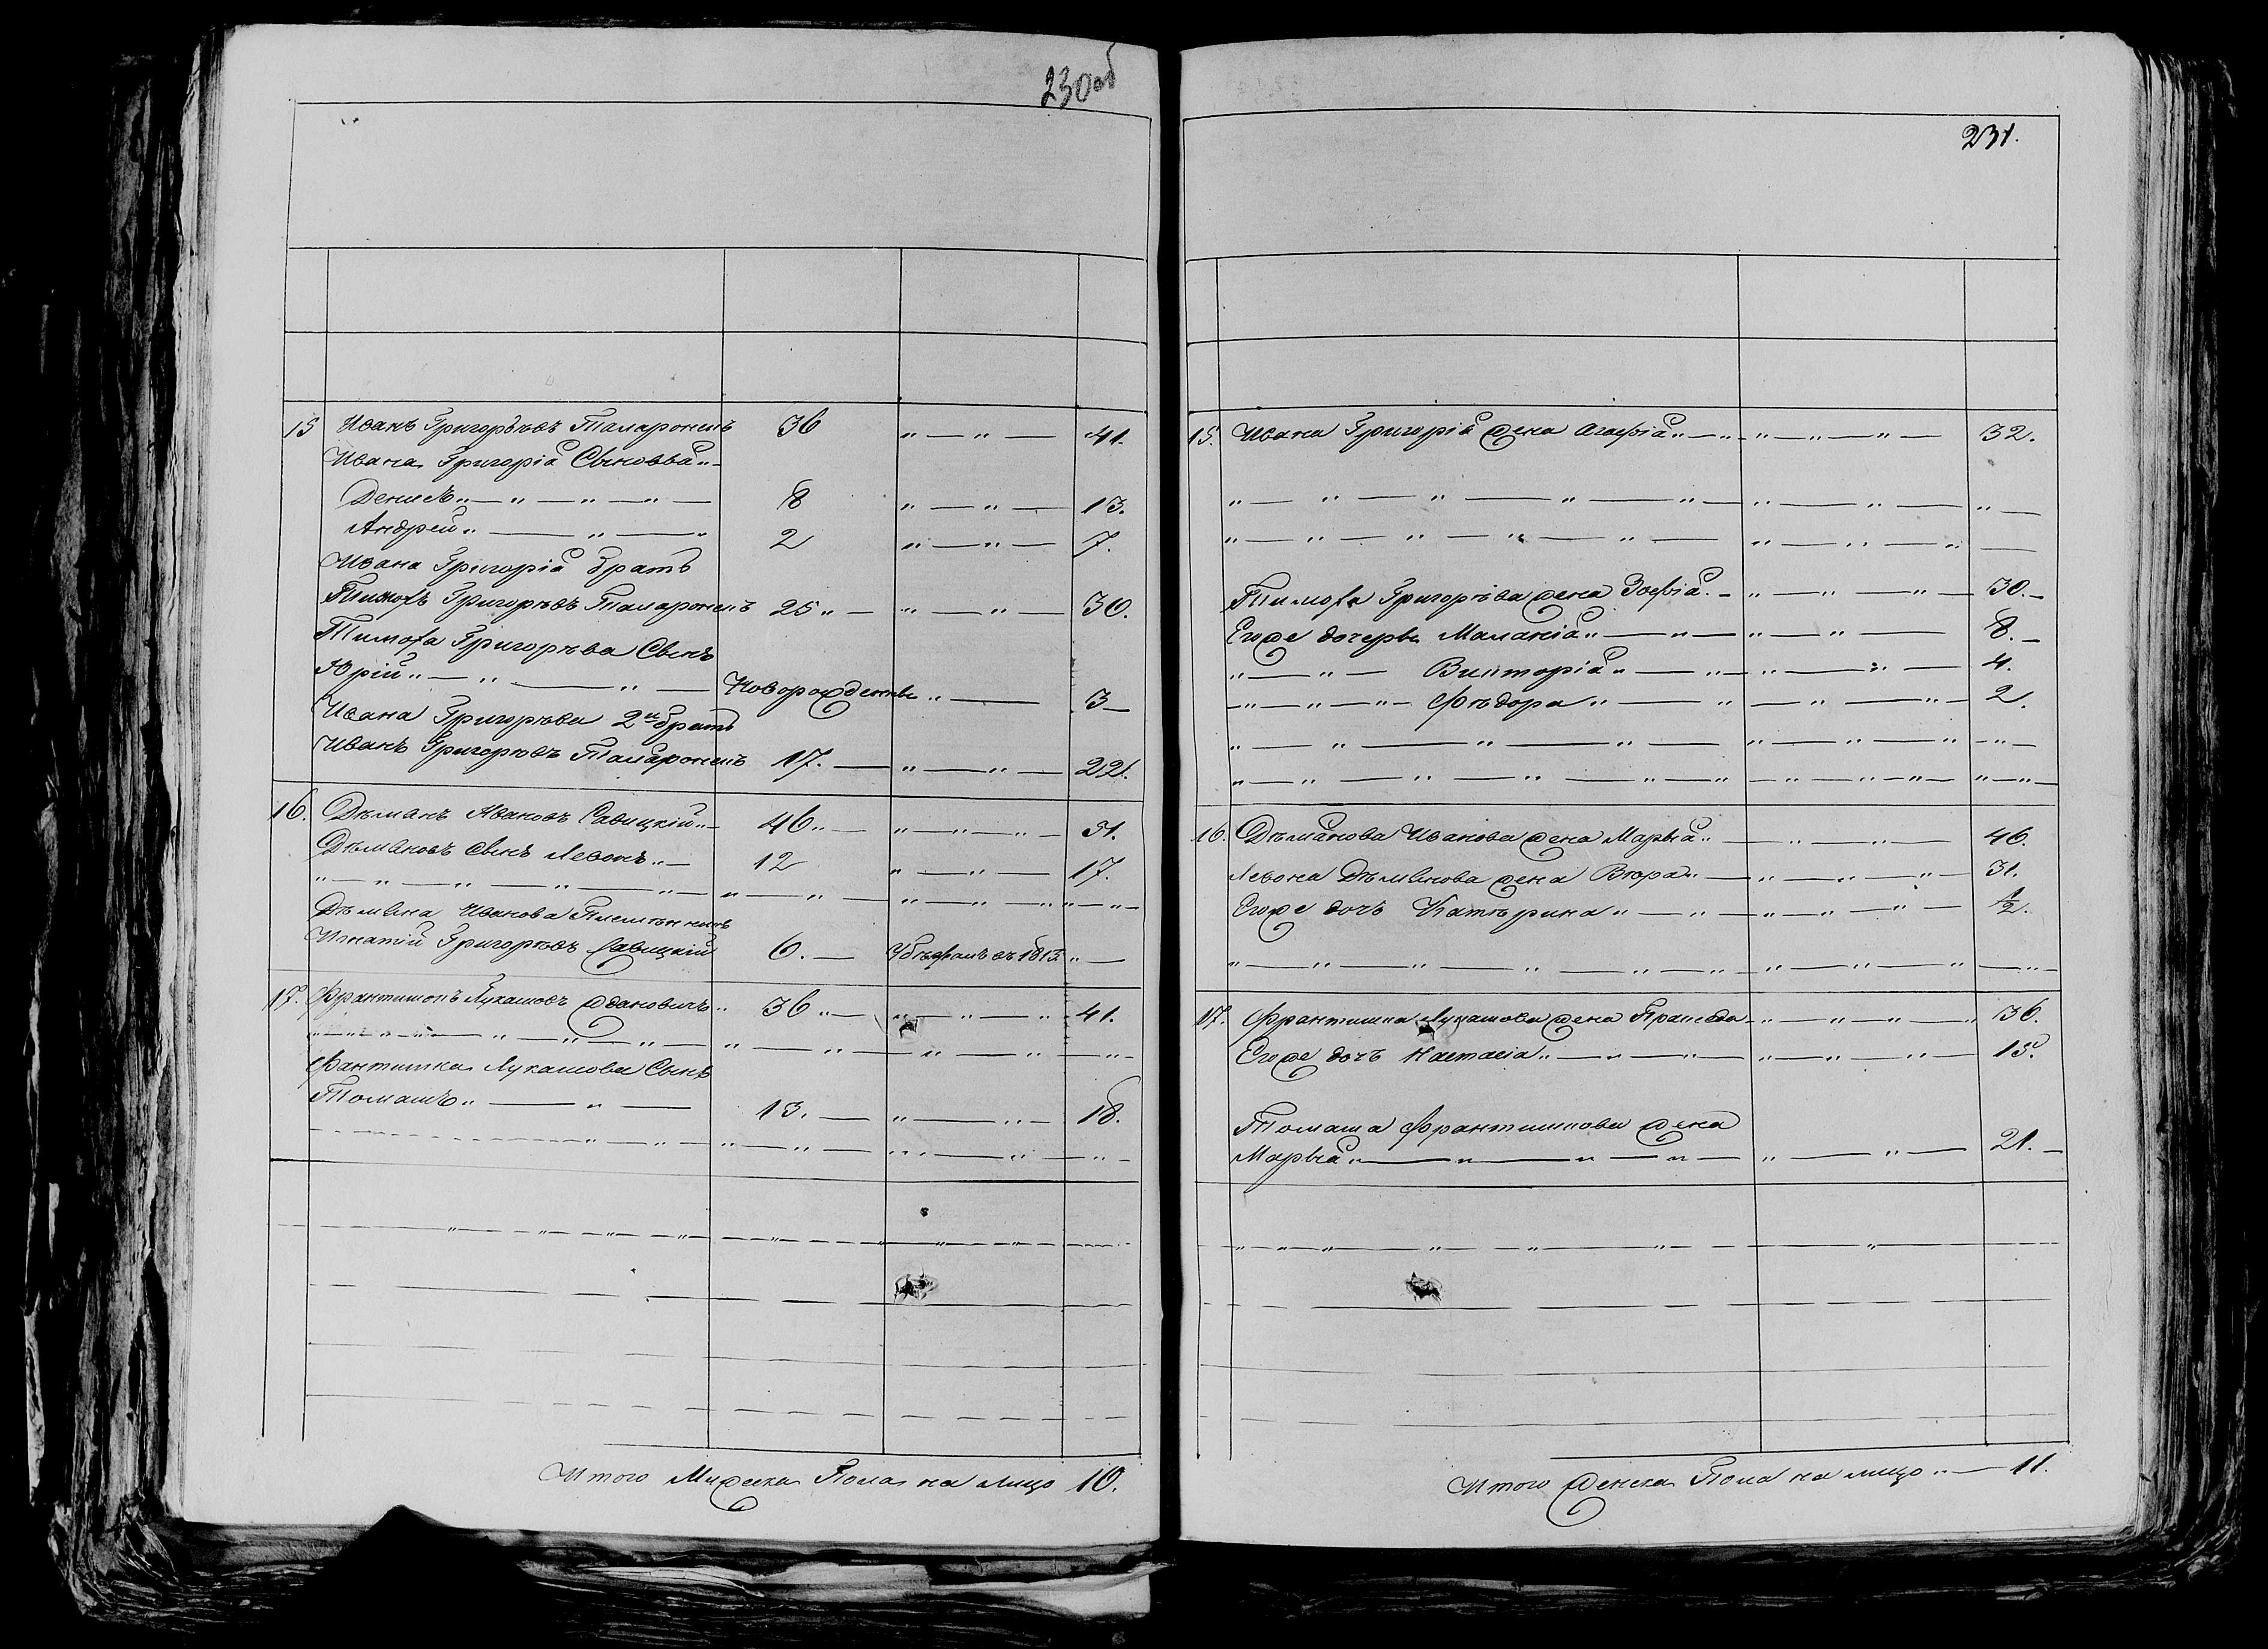 230об
15 Иванъ Григорьевъ Таларонекъ 36 41.
Ивана Григорія Сыновья
Денисъ 8 13.
Андрей 2 7.
Ивана Григорія Братъ
Тимофъ Григорѣвъ Таларонекъ 25 30.
Тимофа Григорѣва Сынъ
Юрій Новорожденны 3
Ивана Григорѣва 2й братъ
Иванъ Григорѣвъ Таларонекъ 17. 22.
16. Дѣманъ Ивановъ Савицкій 46 51.
Дѣмановъ сынъ Левонъ 12 17.
Дѣмана Иванова Племѣнникъ
Игнатій Григорѣвъ Савицкій 6. въ 1813
17. Франтишокъ Лукашовъ Жданович 36 41.
Фантишка Лукашова Сынъ
Томашъ 13. 18.
Итого Мужеска Пола на лицо 10.
231.
15. Ивана Григорія жена Агафія 32.
Тимофа Григорѣва жена Зофія 30.
Егоже дочеры Маланія 8.
Викторія 4.
Фѣдора 2.
16. Дѣманова Иванова жена Марыя 46.
Левона Дѣманова жена Вѣра 31.
Егоже дочъ Катѣрина 1/2.
17. Франтишка Лукашова жена 36.
Егоже дочъ Настасія 15.
Томаша Франтишкова жена
Марыя 21.
Итого женска Пола на лицо 11.